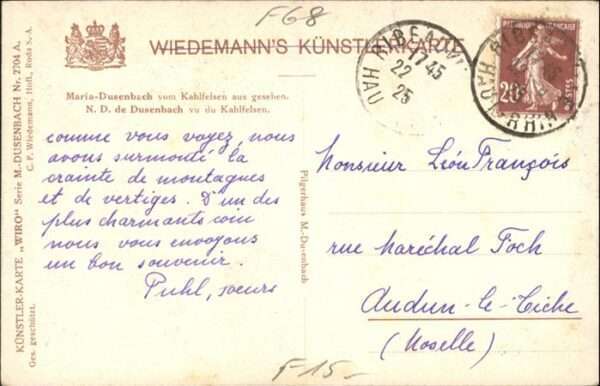 F68
WIEDEMANN'S KÜNSTLERKARTE
Maria-Dusenbach vom Kahlfelsen aus gesehen.
N. D. de Dusenbach vu du Kahlfelsen.
17 45
22
25
HAUT
RHIN
20
POSTES
comme vous voyez, nous
avons surmonté la
crainte de montagnes
et de vertiges. D'un des
plus charmants coin
nous vous envoyons
un bon souvenir.
Puhl, sœurs
Monsieur Léon François
rue Maréchal Foch
Audun-le-Tiche
(Moselle)
Pilgerhaus M.-Dusenbach
KÜNSTLER-KARTE „WIRO" Serie M.-DUSENBACH Nr. 2704 A.
C. F. Wiedemann, Hofl., Roda S.-A.
Ges. geschützt.
F15-